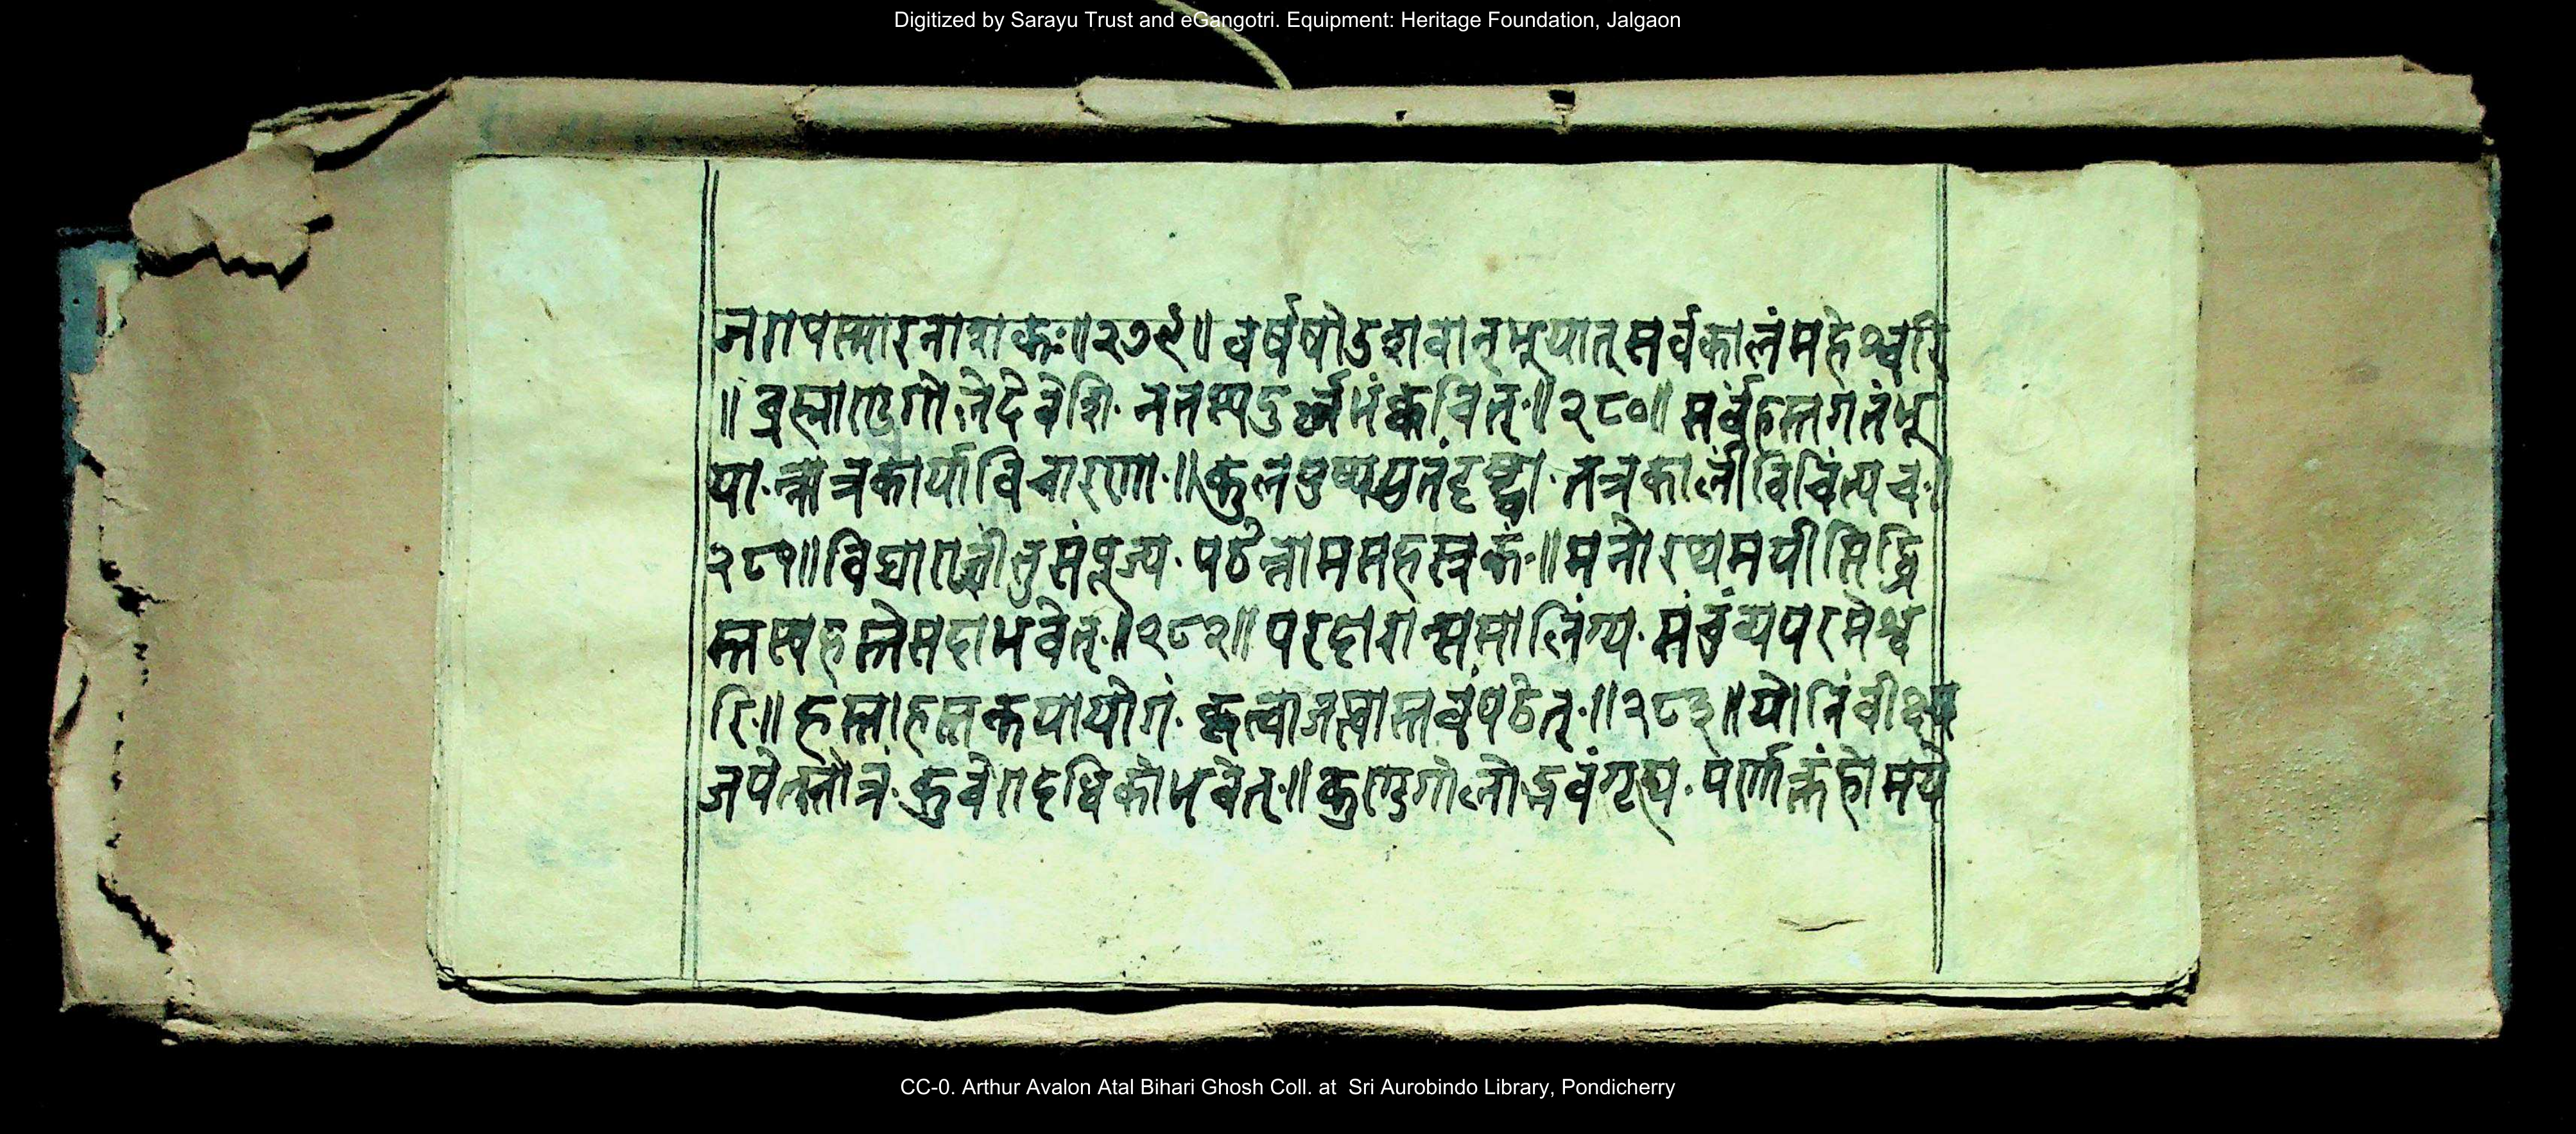 Digitized by Sarayu Trust and eGangotri. Equipment: Heritage Foundation, Jalgaon
जरापस्मारनाशकः॥२७९॥ वर्षषोडशवान्भूयात् सर्वकालंमहेश्वरि
॥ ब्रह्माण्डगोलेदेवेशि· नतस्यदुर्ल्लभंक्वचित्·॥२८०॥ सर्वंहस्तगतंभू
या·न्नात्रकार्याविचारणा·॥ कुलपुष्पयुतंदृष्ट्वा· तत्रकालींविचिंत्यच·॥
२८१॥ विद्याराज्ञींतुसंपूज्य· पठेन्नामसहस्रकं·॥ मनोरथमयीसिद्धि
स्तस्यहस्तेसदाभवेत्·॥२८२॥ परदारान्समालिंग्य· संचुंव्यपरमेश्व
रि·॥ हस्ताहस्तकयायोगं· कृत्वाजप्त्वास्तवंपठेत्·॥२८३॥ योनिंवीक्ष्य
जपेत्स्तोत्रं· कुवेरादधिकोभवेत्·॥ कुण्डगोलोद्भवंगृह्य· वर्णाक्तंहोमये
CC-0. Arthur Avalon Atal Bihari Ghosh Coll. at Sri Aurobindo Library, Pondicherry